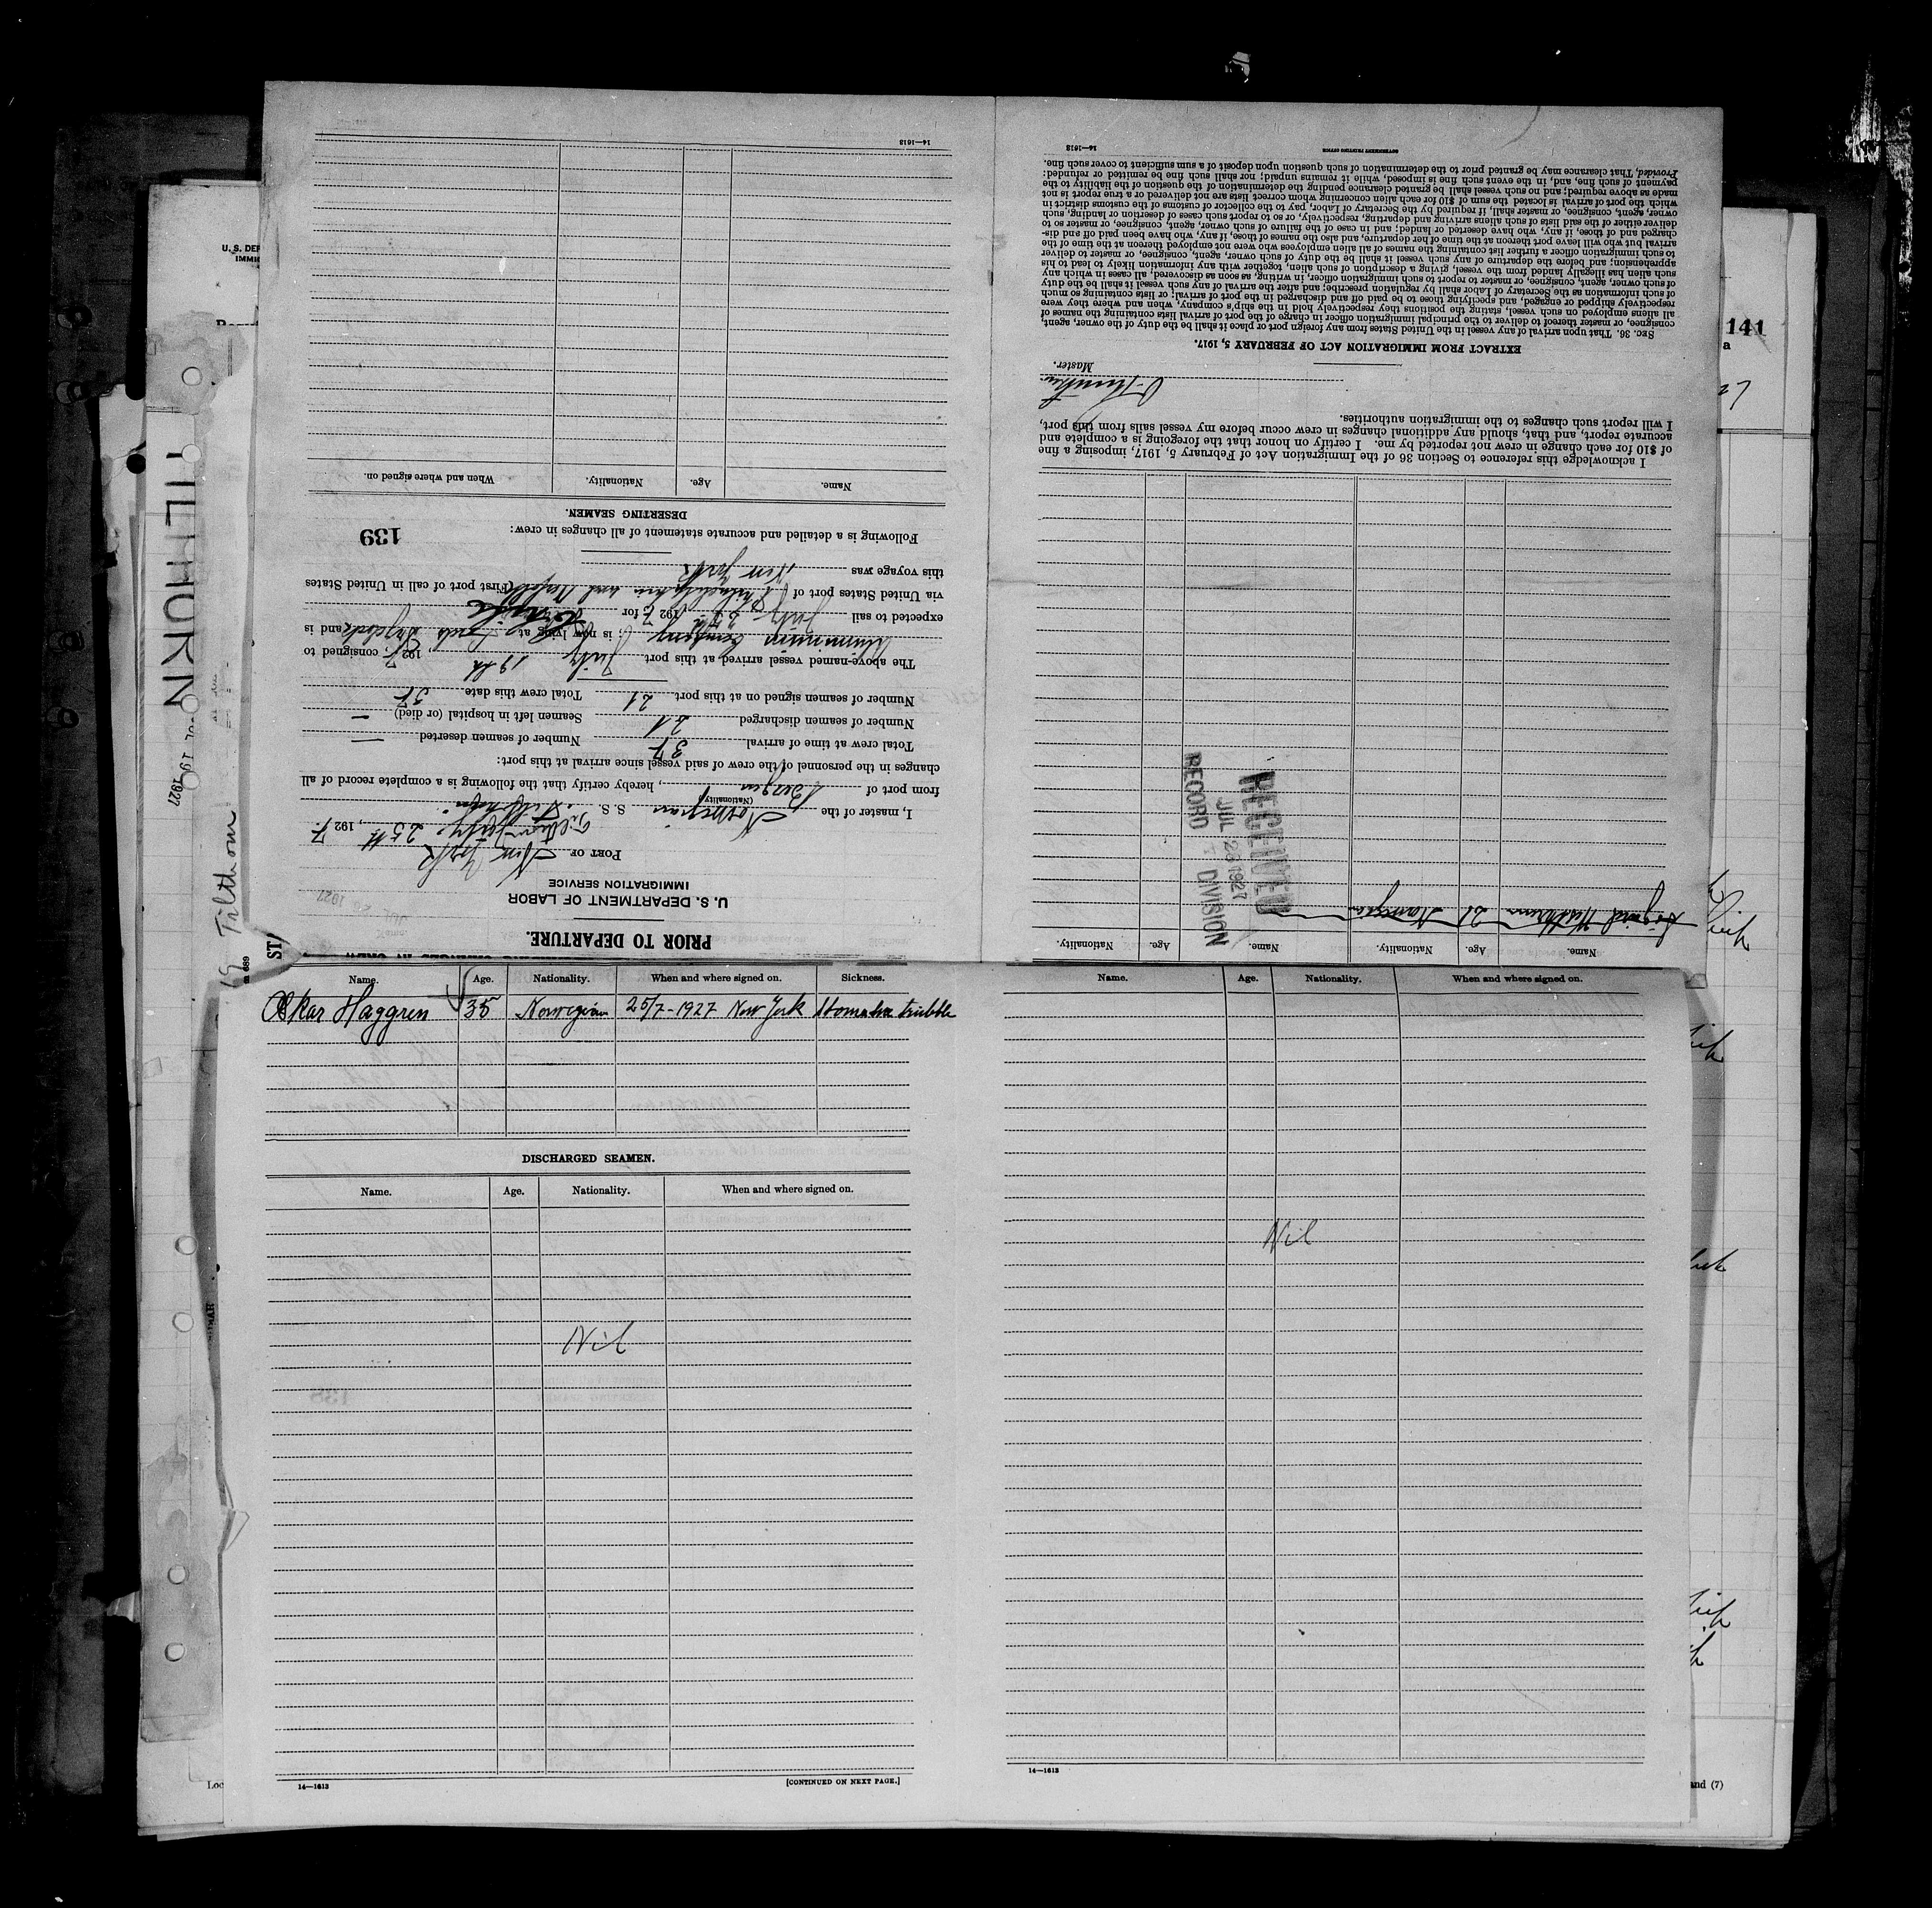 PRIOR TO DEPARTURE.
U. S. DEPARTMENT OF LABOR
IMMIGRATION SERVICE
PORT OF New York
July 25th, 1927
I, master of the Norwegian S. S.
(Nationality)
from port of Bergen, hereby certify that the following is a complete record of all
changes in the personnel of the crew of said vessel since arrival at this port:
Total crew at time of arrival 37 Number of seamen deserted —
Number of seamen discharged 21 Seamen left in hospital (or died) —
Number of seamen signed on at this port 21 Total crew this date 37
The above-named vessel arrived at this port July 19th 1927, consigned to
Company; is now lying at and is
expected to sail July 25th 1927 for
via United States port of Philadelphia and (First port of call in United States
this voyage was New York
Following is a detailed and accurate statement of all changes in crew:
139
DESERTING SEAMEN.
Name. Age. Nationality. When and where signed on.
14—1613
Name. Age. Nationality. Name. Age. Nationality.
Sigurd 21 Norwegian
RECEIVED
JUL 26 1927
RECORD DIVISION
I acknowledge this reference to Section 36 of the Immigration Act of February 5, 1917, imposing a fine
of $10 for each change in crew not reported by me. I certify on honor that the foregoing is a complete and
accurate report, and that, should any additional changes in crew occur before my vessel sails from this port,
I will report such changes to the immigration authorities.
Master.
EXTRACT FROM IMMIGRATION ACT OF FEBRUARY 5, 1917.
SEC. 36. That upon arrival of any vessel in the United States from any foreign port or place it shall be the duty of the owner, agent,
consignee, or master thereof to deliver to the principal immigration officer in charge of the port of arrival lists containing the names of
all aliens employed on such vessel, stating the positions they respectively hold in the ship's company, when and where they were
respectively shipped or engaged, and specifying those to be paid off and discharged in the port of arrival; or lists containing so much
of such information as the Secretary of Labor shall by regulation prescribe; and after the arrival of any such vessel it shall be the duty
of such owner, agent, consignee, or master to report to such immigration officer, in writing, as soon as discovered, all cases in which any
such alien has illegally landed from the vessel, giving a description of such alien, together with any information likely to lead to his
apprehension; and before the departure of any such vessel it shall be the duty of such owner, agent, consignee, or master to deliver
to such immigration officer a further list containing the names of all alien employees who were not employed thereon at the time of the
arrival but who will leave port thereon at the time of her departure, and also the names of those, if any, who have been paid off and dis-
charged and of those, if any, who have deserted or landed; and in case of the failure of such owner, agent, consignee, or master so to
deliver either of the said lists of such aliens arriving and departing, respectively, or so to report such cases of desertion or landing, such
owner, agent, consignee, or master, shall, if required by the Secretary of Labor, pay to the collector of customs of the customs district in
which the port of arrival is located the sum of $10 for each alien concerning whom correct lists are not delivered or a true report is not
made as above required; and no such vessel shall be granted clearance pending the determination of the question of the liability to the
payment of such fine, and, in the event such fine is imposed, while it remains unpaid; nor shall such fine be remitted or refunded:
Provided, That clearance may be granted prior to the determination of such question upon deposit of a sum sufficient to cover such fine.
14—1613
GOVERNMENT PRINTING OFFICE
U. S. DEP
IMMI
TILTHORN
JUL 19 1927
Tilthorn
141
a
Name. Age. Nationality. When and where signed on. Sickness.
Oskar Haggren 35 Norwegian 25/7-1927 New York Stomahe trubble
DISCHARGED SEAMEN.
Name. Age. Nationality. When and where signed on.
Nil
14—1613
[CONTINUED ON NEXT PAGE.]
Name. Age. Nationality. When and where signed on.
Nil
14—1613
and (7)